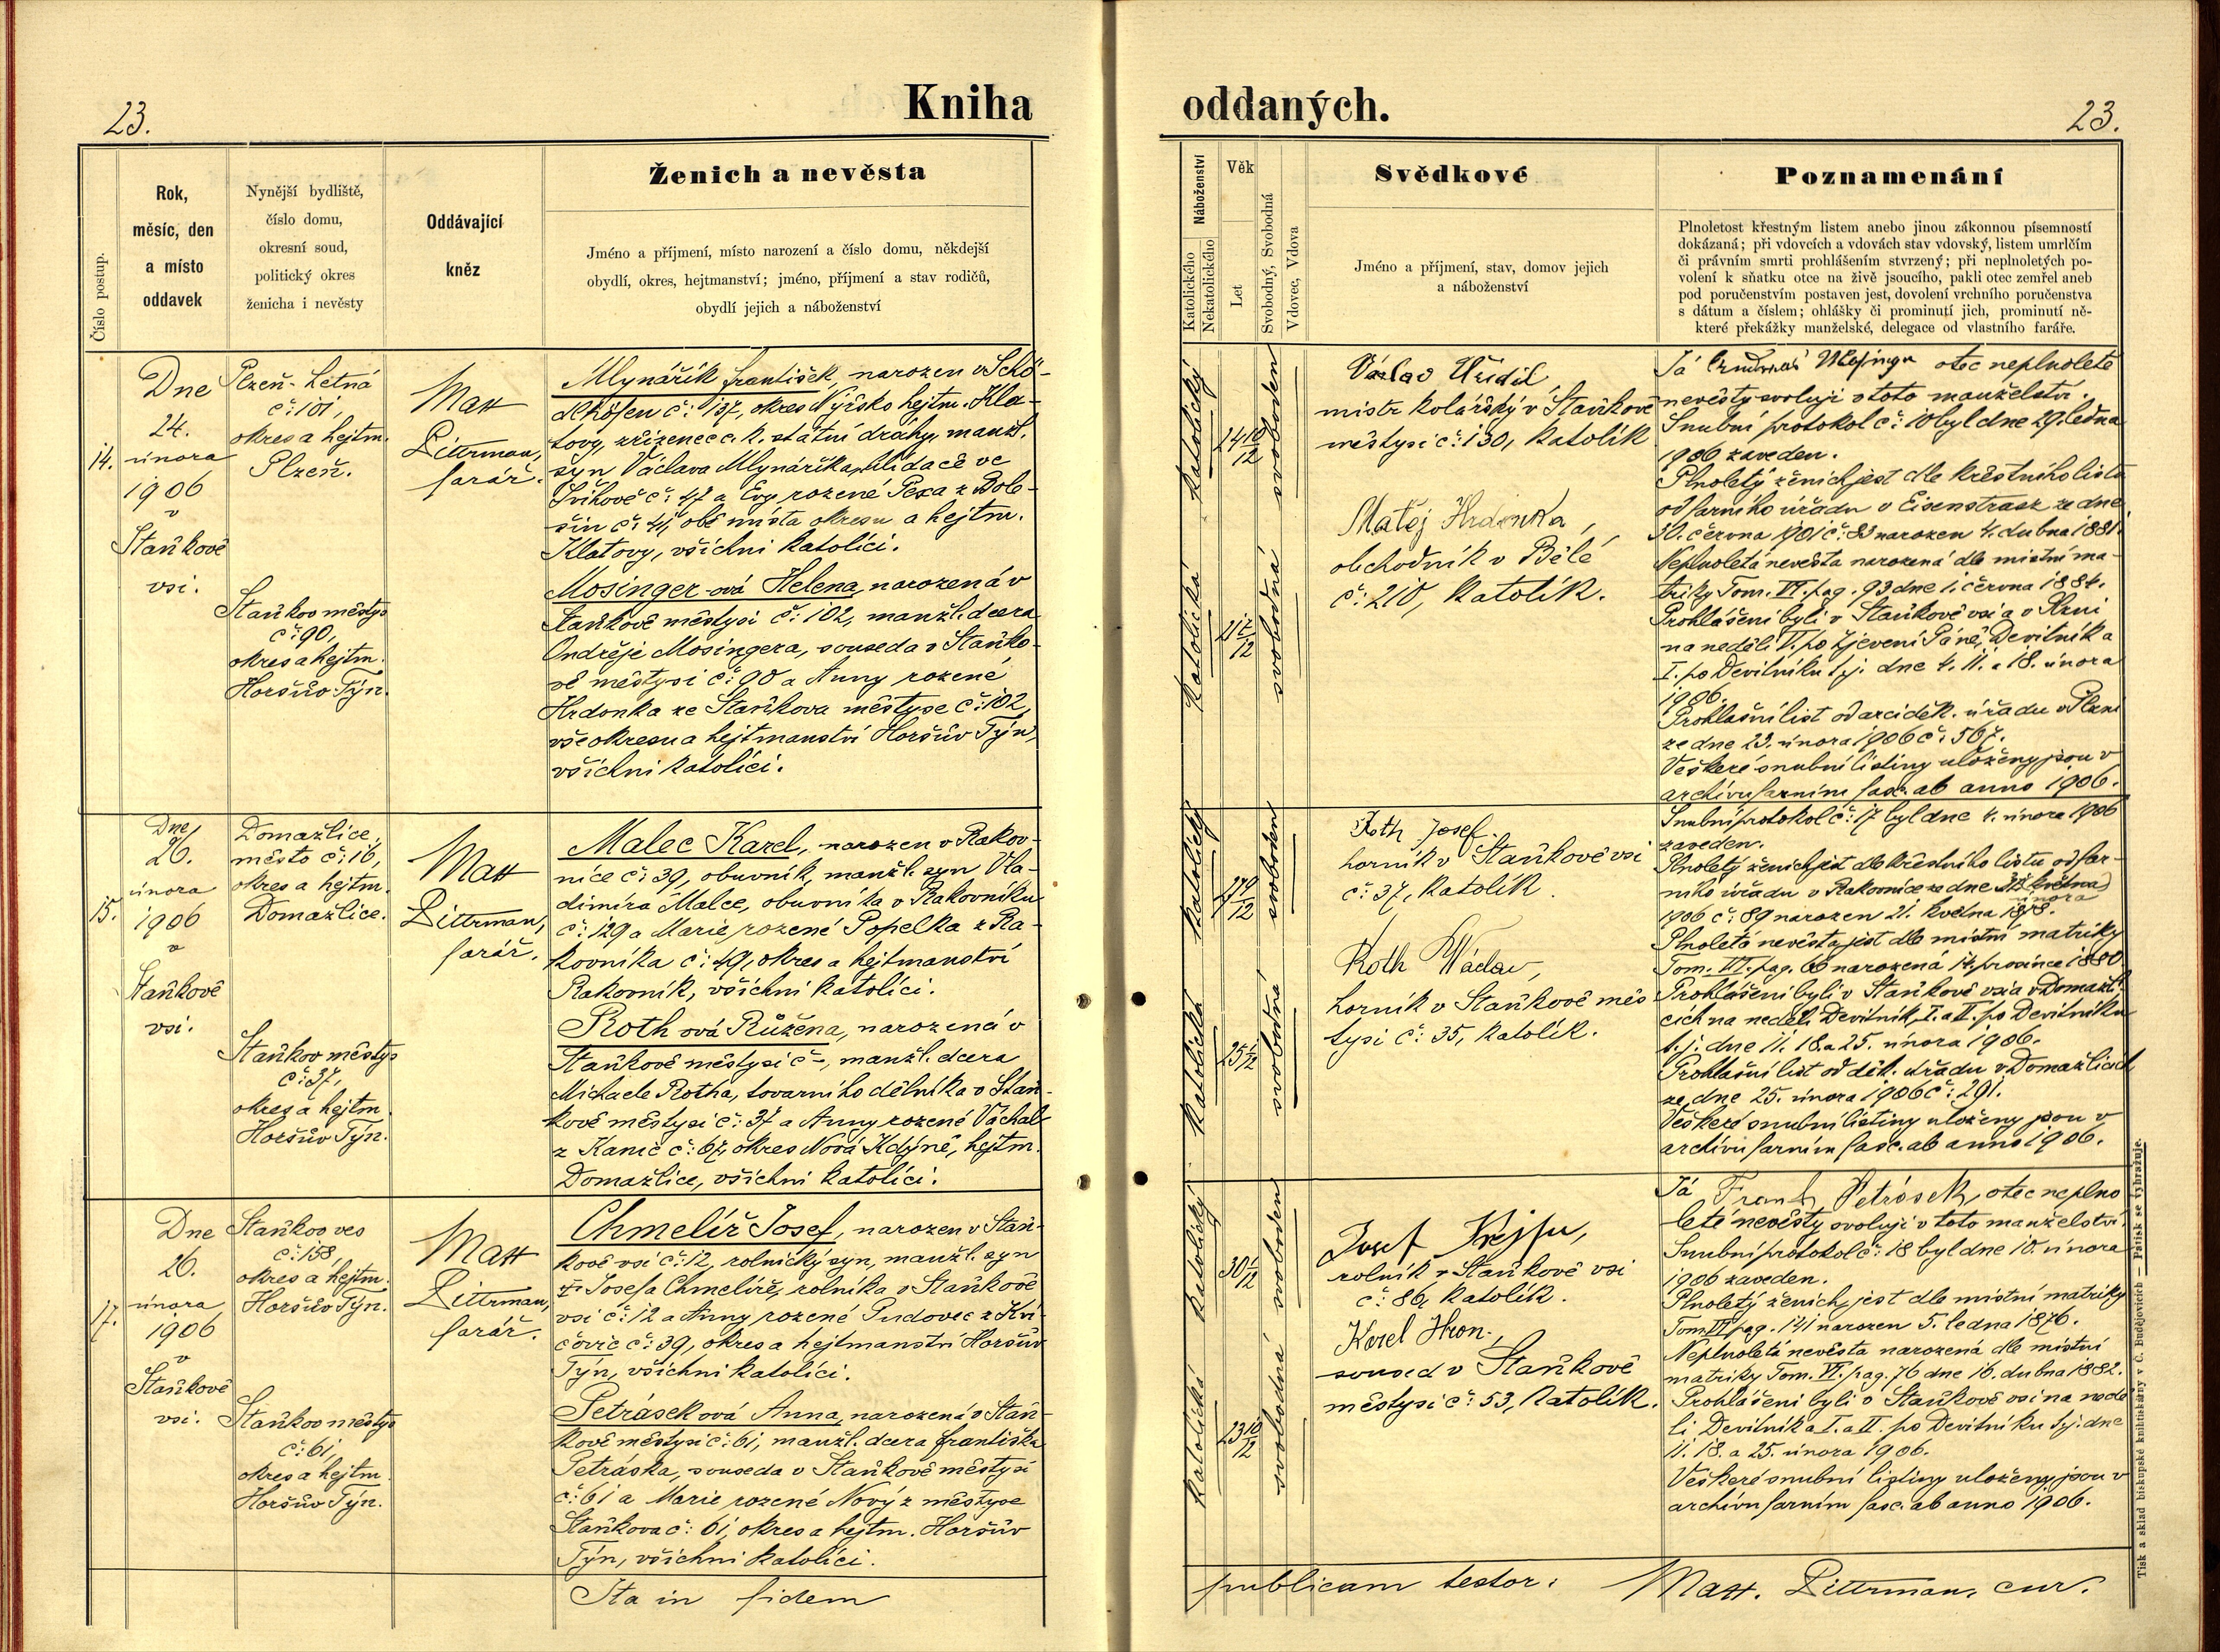 23.
Kniha
Číslo postup.
Rok,
měsíc, den
a místo
oddavek
Nynější bydliště,
číslo domu,
okresní soud,
politický okres
ženicha i nevěsty
Oddávající
kněz
Ženich a nevěsta
Jméno a příjmení, místo narození a číslo domu, někdejší
obydlí, okres, hejtmanství; jméno, příjmení a stav rodičů,
obydlí jejich a náboženství
14.
Dne
24.
února
1906
v
Staňkově
vsi.
Plzeň-Letná
č: 101,
okres a hejtm.
Plzeň.
Staňkov městys
č: 90,
okres a hejtm.
Horšův Týn.
Mat
Dittrman,
farář.
Mlynářík František, narozen v
č: 137, okres Nýrsko hejtm. Kla-
tovy, zřízenec c. k. státní dráhy, manž.
syn Václava Mlynáříka, hlídače ve
Švihově č: 47 a Evy rozené Pexa z Bole-
šin č: 41, obě místa okresu a hejtm.
Klatovy, všichni katolíci.
Mosinger-ová Helena, narozená v
Staňkově městysi č: 102, manžl. dcera
Ondřeje Mosingera, souseda v Staňko-
vě městysi č: 90 a Anny rozené
Hrdonka ze Staňkova městyse č: 102,
vše okresu a hejtmanství Horšův Týn,
všichni katolíci.
15.
Dne
26.
února
1906
v
Staňkově
vsi.
Domažlice,
město č: 16,
okres a hejtm.
Domažlice.
Staňkov městys
č: 37,
okres a hejtm
Horšův Týn.
Mat
Dittrman,
farář.
Malec Karel, narozen v Rakov-
níce č: 39, obuvník, manžl. syn Vla-
dimíra Malce, obuvníka v Rakovníku
č: 129 a Marie rozené Popelka z Ra-
kovníka č: 49, okres a hejtmanství
Rakovník, všichni katolíci.
Roth ová Růžena, narozená v
Staňkově městysi č -, manžl. dcera
Michaele Rotha, továrního dělníka v Staň-
kově městysi č: 37 a Anny rozené Váchal
z Kanic č: 67, okres Nová Kdýně, hejtm.
Domažlice, všichni katolíci.
17.
Dne
26.
února
1906
v
Staňkově
vsi.
Staňkov ves
č: 158,
okres a hejtm.
Horšův Týn.
Staňkov městys
č: 61,
okres a hejtm
Horšův Týn.
Mat
Dittrman,
farář.
Chmelíř Josef, narozen v Staň-
kově vsi č: 12, rolnický syn, manžl. syn
Josefa Chmelíře, rolníka v Staňkově
vsi č: 12 a Anny rozené Pudovec z Kvi-
čovic č: 39, okres a hejtmanství Horšův
Týn, všichni katolíci.
Petrásek ová Anna, narozená v Staň-
kově městysi č: 61, manžl. dcera Františka
Petráska, souseda v Staňkově městysi
č: 61 a Marie rozené Nový z městyse
Staňkova č: 61, okres a hejtm. Horšův
Týn, všichni katolíci.
Ita in fidem
oddaných.
23.
Náboženství
Katolického
Nekatolického
Věk
Let
Svobodný, Svobodná
Vdovec, Vdova
Svědkové
Jméno a příjmení, stav, domov jejich
a náboženství
Poznamenání
Plnoletost křestným listem anebo jinou zákonnou písemností
dokázaná; při vdovcích a vdovách stav vdovský, listem umrlčím
či právním smrti prohlášením stvrzený; při neplnoletých po-
volení k sňatku otce na živě jsoucího, pakli otec zemřel aneb
pod poručenstvím postaven jest, dovolení vrchního poručenstva
s dátum a číslem; ohlášky či prominutí jich, prominutí ně-
které překážky manželské, delegace od vlastního faráře.
katolický
24 10/12
svoboden
katolická
svobodná
Václav Uřidil
mistr kolářský v Staňkově
městysi č: 130, katolík
Matěj Hrdonka,
obchodník v Bělé
č: 210, katolík.
Já otec neplnoleté
nevěsty svoluji v toto manželství.
Snubní protokol č: 10 byl dne 29. ledna
1906 zaveden.
Plnoletý ženich jest dle křestního listu
od farního úřadu v Eisenstrasz ze dne
30. června 1901 č: 83 narozen 4. dubna 1881.
Neplnoletá nevěsta narozená dle místní ma-
triky Tom. VI. pag. 93 dne 1. června 1884.
Prohlášeni byli v Staňkově vsi a v Plzni
na neděli V. po Zjevení Páně, Devítník a
I. po Devítníku t. j. dne 4. 11. a 18. února
1906.
Prohlašní list od arciděk. úřadu v Plzni
ze dne 23. února 1906 č: 507.
Veškeré snubní listiny uloženy jsou v
archivu farním fasc. ab anno 1906.
katolický
27 9/12
svoboden
katolická
25
svobodná
Roth Josef
horník v Staňkově vsi
č: 37, katolík.
Roth Václav,
horník v Staňkově měs
tysi č: 35, katolík.
Snubní protokol č: 17 byl dne 4. února 1906
zaveden.
Plnoletý ženich jest dle křestního listu od far-
ního úřadu v Rakovníce ze dne května
února
1906 č: 89 narozen 21. května 1878.
Plnoletá nevěsta jest dle místní matriky
Tom. VI. pag. 66 narozená 14. prosince 1880.
Prohlášeni byli v Staňkově vsi a v Domažli-
cích na neděli Devítník, I. a II. po Devítníku
t. j. dne 11. 18. a 25. února 1906.
Prohlašní list od děk. úřadu v Domažlicích
ze dne 25. února 1906 č: 291.
Veškeré snubní listiny uloženy jsou v
archivu farním fasc. ab anno 1906.
katolický
30 1/12
svoboden
katolická
23 10/12
svobodná
Josef Krejsa,
rolník v Staňkově vsi
č: 86, katolík.
Karel Hron.,
soused v Staňkově
městysi č: 53, katolík.
Já Frant Petrásek, otec neplno
leté nevěsty svoluji v toto manželství.
Snubní protokol č: 18 byl dne 10. února
1906 zaveden.
Plnoletý ženich, jest dle místní matriky
Tom VI pag. 141 narozen 5. ledna 1876.
Neplnoletá nevěsta narozená dle místní
matriky Tom. VI. pag. 76 dne 16. dubna 1882.
Prohlášeni byli v Staňkově vsi na nedě
li Devítník a I. a II. po Devítníku t. j. dne
11. 18. a 25. února 1906.
Veškeré snubní listiny uloženy jsou v
archivu farním fasc. ab anno 1906.
publicam testor:
Matt. Dittrman, cur.
Tisk a sklad biskupské knihtiskárny v Č. Budějovicích — Patisk se vyhražuje.